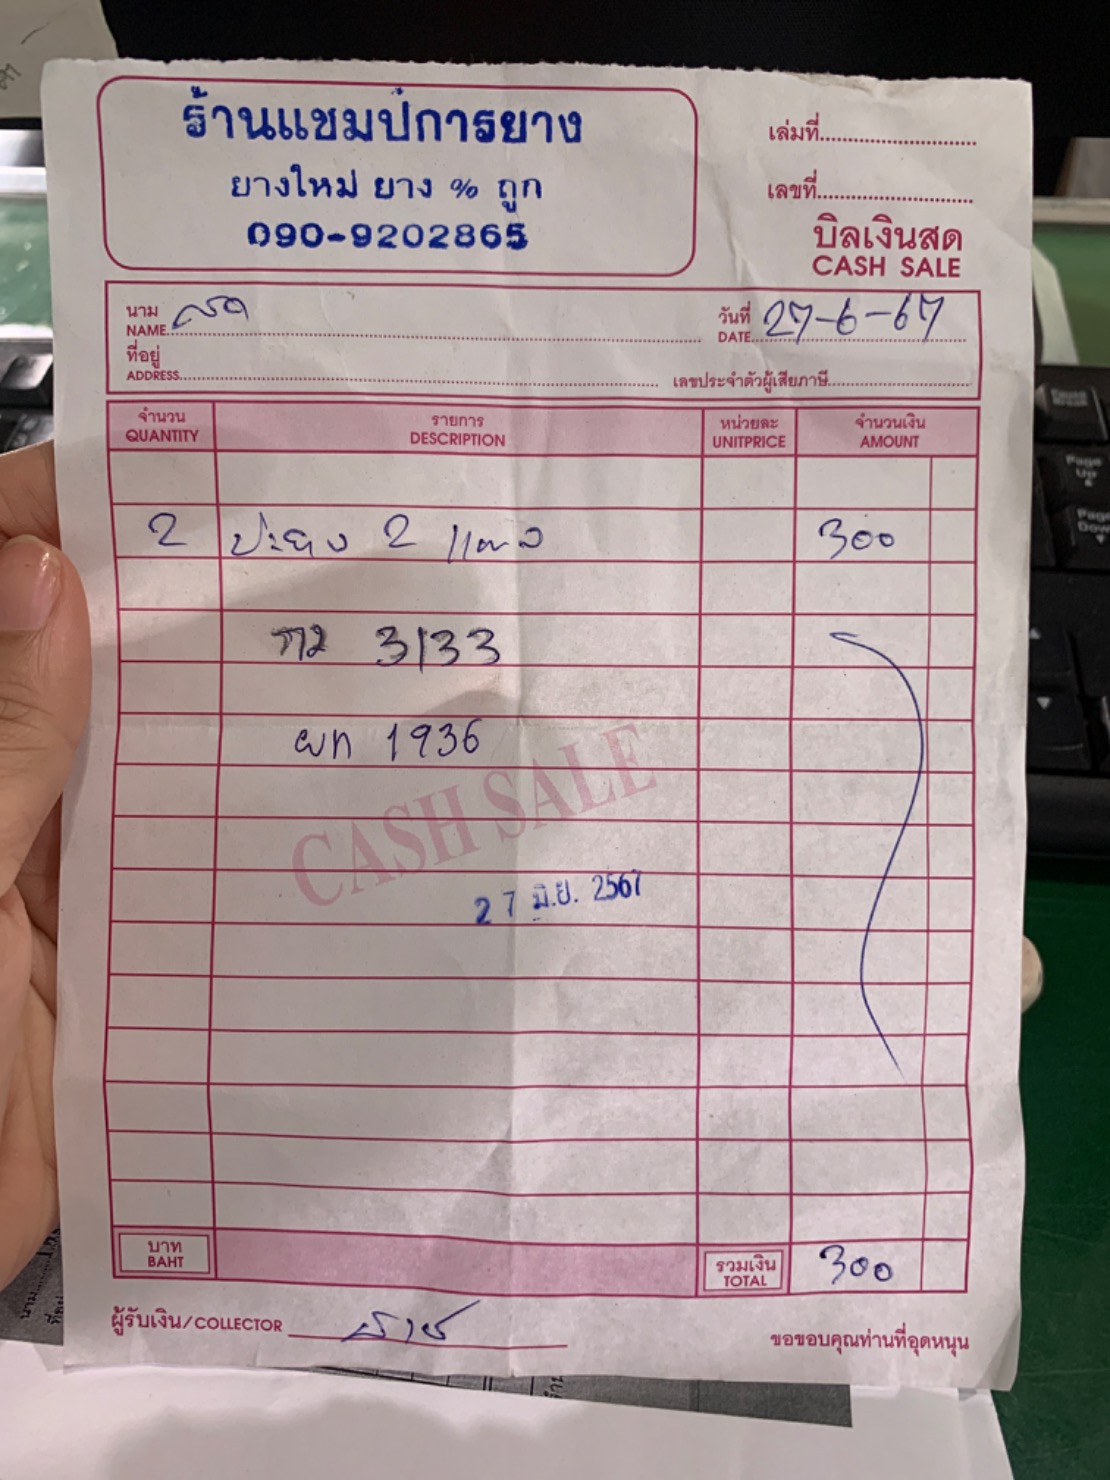 ร้านแชมป์การยาง
ยางใหม่ ยาง % ถูก
090-9202865
เล่มที่
เลขที่
บิลเงินสด
CASH SALE
นาม
NAME
วันที่ 27-6-67
DATE
ที่อยู่
ADDRESS
เลขประจำตัวผู้เสียภาษี
จำนวน รายการ หน่วยละ จำนวนเงิน
QUANTITY DESCRIPTION UNITPRICE AMOUNT
2 ปะยาง 2 แผล 300
กม 3133
ผท 1936
CASH SALE
27 มิ.ย. 2567
บาท
BAHT
รวมเงิน 300
TOTAL
ผู้รับเงิน/COLLECTOR
ขอขอบคุณท่านที่อุดหนุน